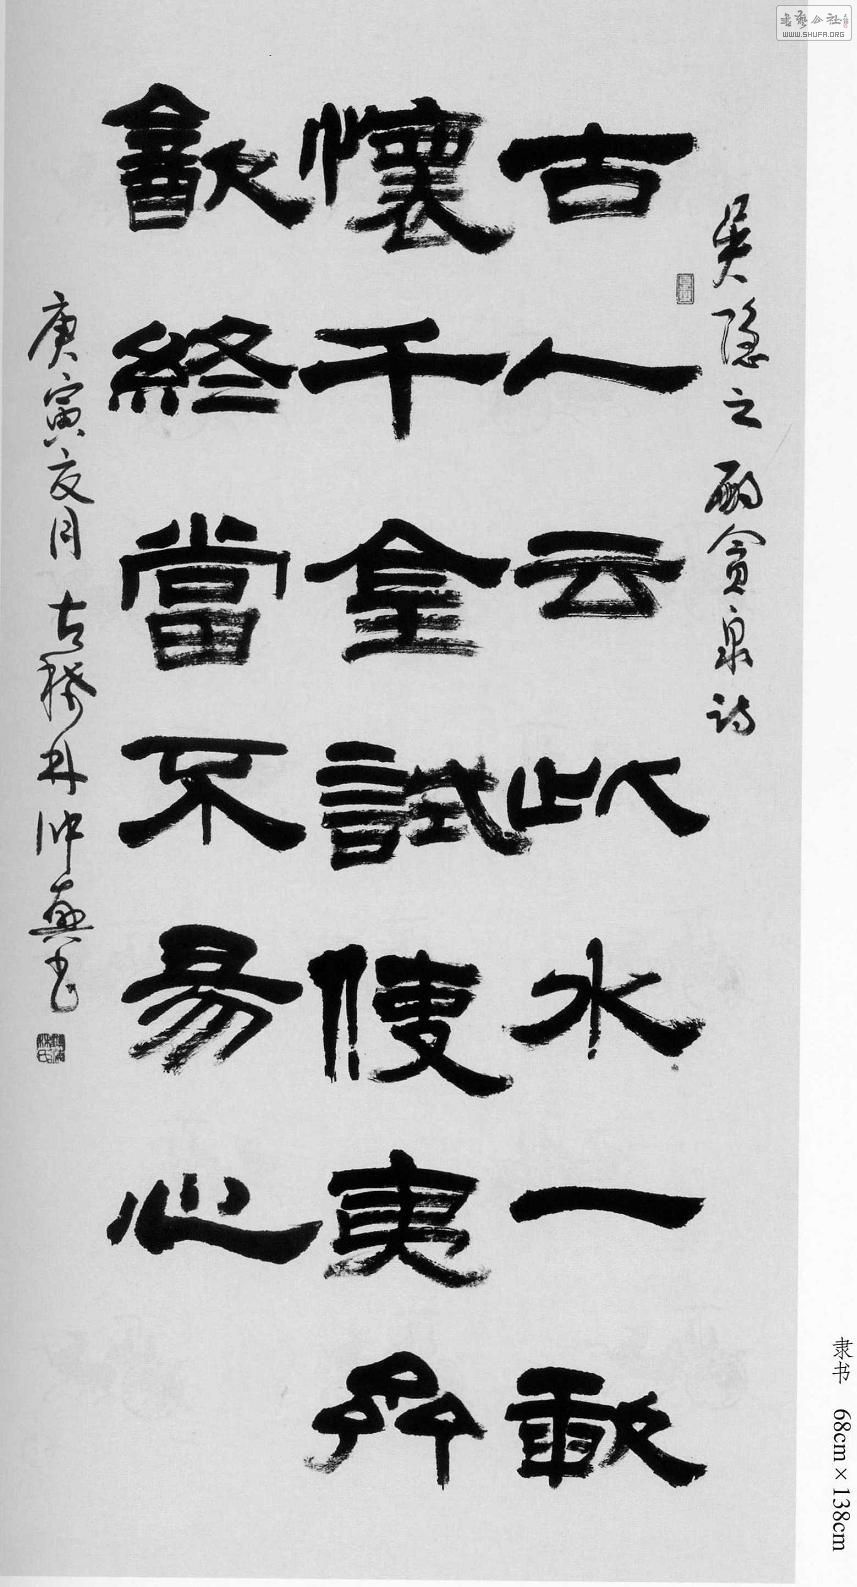 書藝公社
WWW.SHUFA.ORG
吴隐之酌贪泉诗
古人云此水一歃
懷千金試使夷齊
㱃終當不易心
庚寅夏月古稀林仲興书
隶书 68cm×138cm